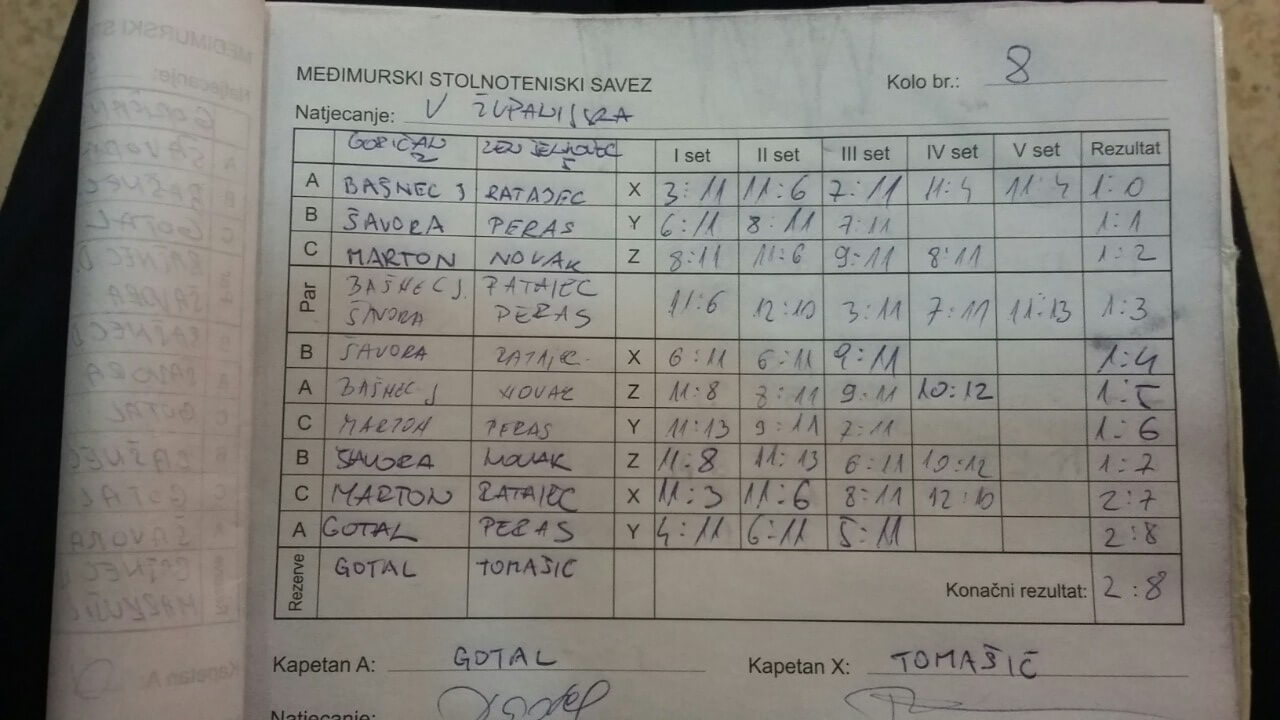 MEĐIMURSKI STOLNOTENISKI SAVEZ
Kolo br.: 8
Natjecanje: V ŽUPANIJSKA
GORIČAN 2 I set II set III set IV set V set Rezultat
A BAŠNEC J RATAJEC X 3:11 11:6 7:11 11:4 11:4 1:0
B ŠAVORA PERAS Y 6:11 8:11 7:11 1:1
C MARTON NOVAK Z 8:11 11:6 9:11 8:11 1:2
Par BAŠNEC J. RATAJEC 11:6 12:10 3:11 7:11 11:13 1:3
ŠAVORA PERAS
B ŠAVORA RATAJEC X 6:11 6:11 9:11 1:4
A BAŠNEC J NOVAK Z 11:8 8:11 9:11 10:12 1:5
C MARTON PERAS Y 11:13 9:11 7:11 1:6
B ŠAVORA NOVAK Z 11:8 11:13 6:11 10:12 1:7
C MARTON RATAJEC X 11:3 11:6 8:11 12:10 2:7
A GOTAL PERAS Y 4:11 6:11 5:11 2:8
Rezerve GOTAL TOMAŠIĆ Konačni rezultat: 2:8
Kapetan A: GOTAL Kapetan X: TOMAŠIĆ
Natjecanje: